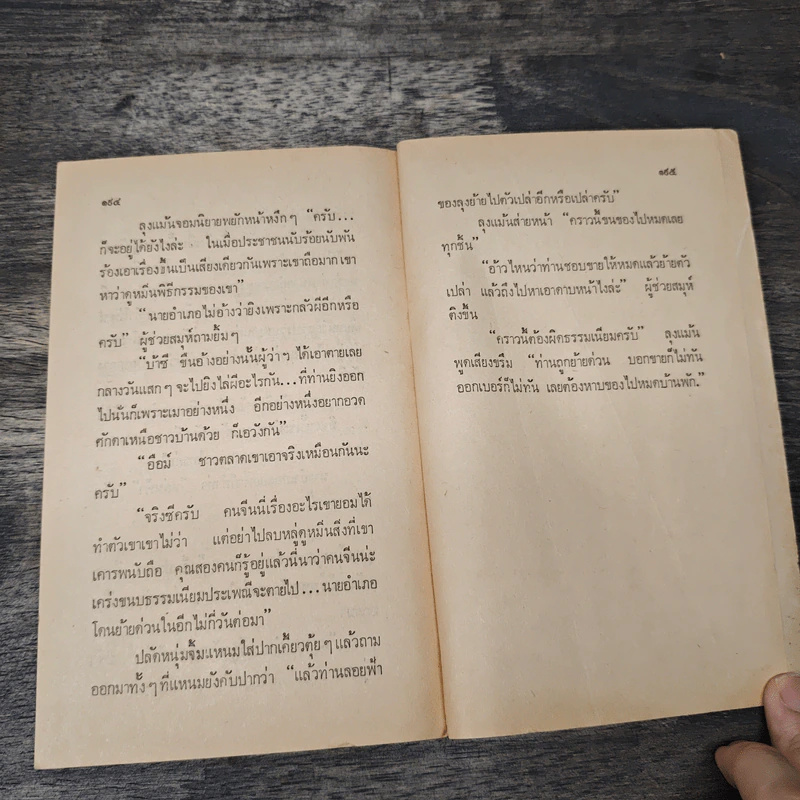 ๑๙๔
ลุงแม้นจอมนิยายพยักหน้าหงึกๆ “ครับ...
ก็จะอยู่ได้ยังไงล่ะ ในเมื่อประชาชนนับร้อยนับพัน
ร้องเอาเรื่องขึ้นเป็นเสียงเดียวกันเพราะเขาถือมาก เขา
หาว่าดูหมิ่นพิธีกรรมของเขา”
“นายอำเภอไม่อ้างว่ายิงเพราะกลัวผีอีกหรือ
ครับ” ผู้ช่วยสมุห์ถามยิ้มๆ
“บ้าซี ขืนอ้างอย่างนั้นผู้ว่าฯ ได้เอาตายเลย
กลางวันแสกๆ จะไปยิงไล่ผีอะไรกัน...ที่ท่านยิงออก
ไปนั่นก็เพราะเมาอย่างหนึ่ง อีกอย่างหนึ่งอยากอวด
ศักดาเหนือชาวบ้านด้วย ก็เอวังกัน”
“อือม์ ชาวตลาดเขาเอาจริงเหมือนกันนะ
ครับ”
“จริงซีครับ คนจีนนี่เรื่องอะไรเขายอมได้
ทำตัวเขาเขาไม่ว่า แต่อย่าไปลบหลู่ดูหมิ่นสิ่งที่เขา
เคารพนับถือ คุณสองคนก็รู้อยู่แล้วนี่นาว่าคนจีนน่ะ
เคร่งขนบธรรมเนียมประเพณีจะตายไป...นายอำเภอ
โดนย้ายด่วนในอีกไม่กี่วันต่อมา”
ปลัดหนุ่มจิ้มแหนมใส่ปากเคี้ยวตุ้ยๆ แล้วถาม
ออกมาทั้งๆ ที่แหนมยังคับปากว่า “แล้วท่านลอยฟ้า
๑๙๕
ของลุงย้ายไปตัวเปล่าอีกหรือเปล่าครับ”
ลุงแม้นส่ายหน้า “คราวนี้ขนของไปหมดเลย
ทุกชิ้น”
“อ้าวไหนว่าท่านชอบขายให้หมดแล้วย้ายตัว
เปล่า แล้วถึงไปหาเอาดาบหน้าไงล่ะ” ผู้ช่วยสมุห์
ติงขึ้น
“คราวนี้ต้องผิดธรรมเนียมครับ” ลุงแม้น
พูดเสียงขรึม “ท่านถูกย้ายด่วน บอกขายก็ไม่ทัน
ออกเบอร์ก็ไม่ทัน เลยต้องหาบของไปหมดบ้านพัก.”